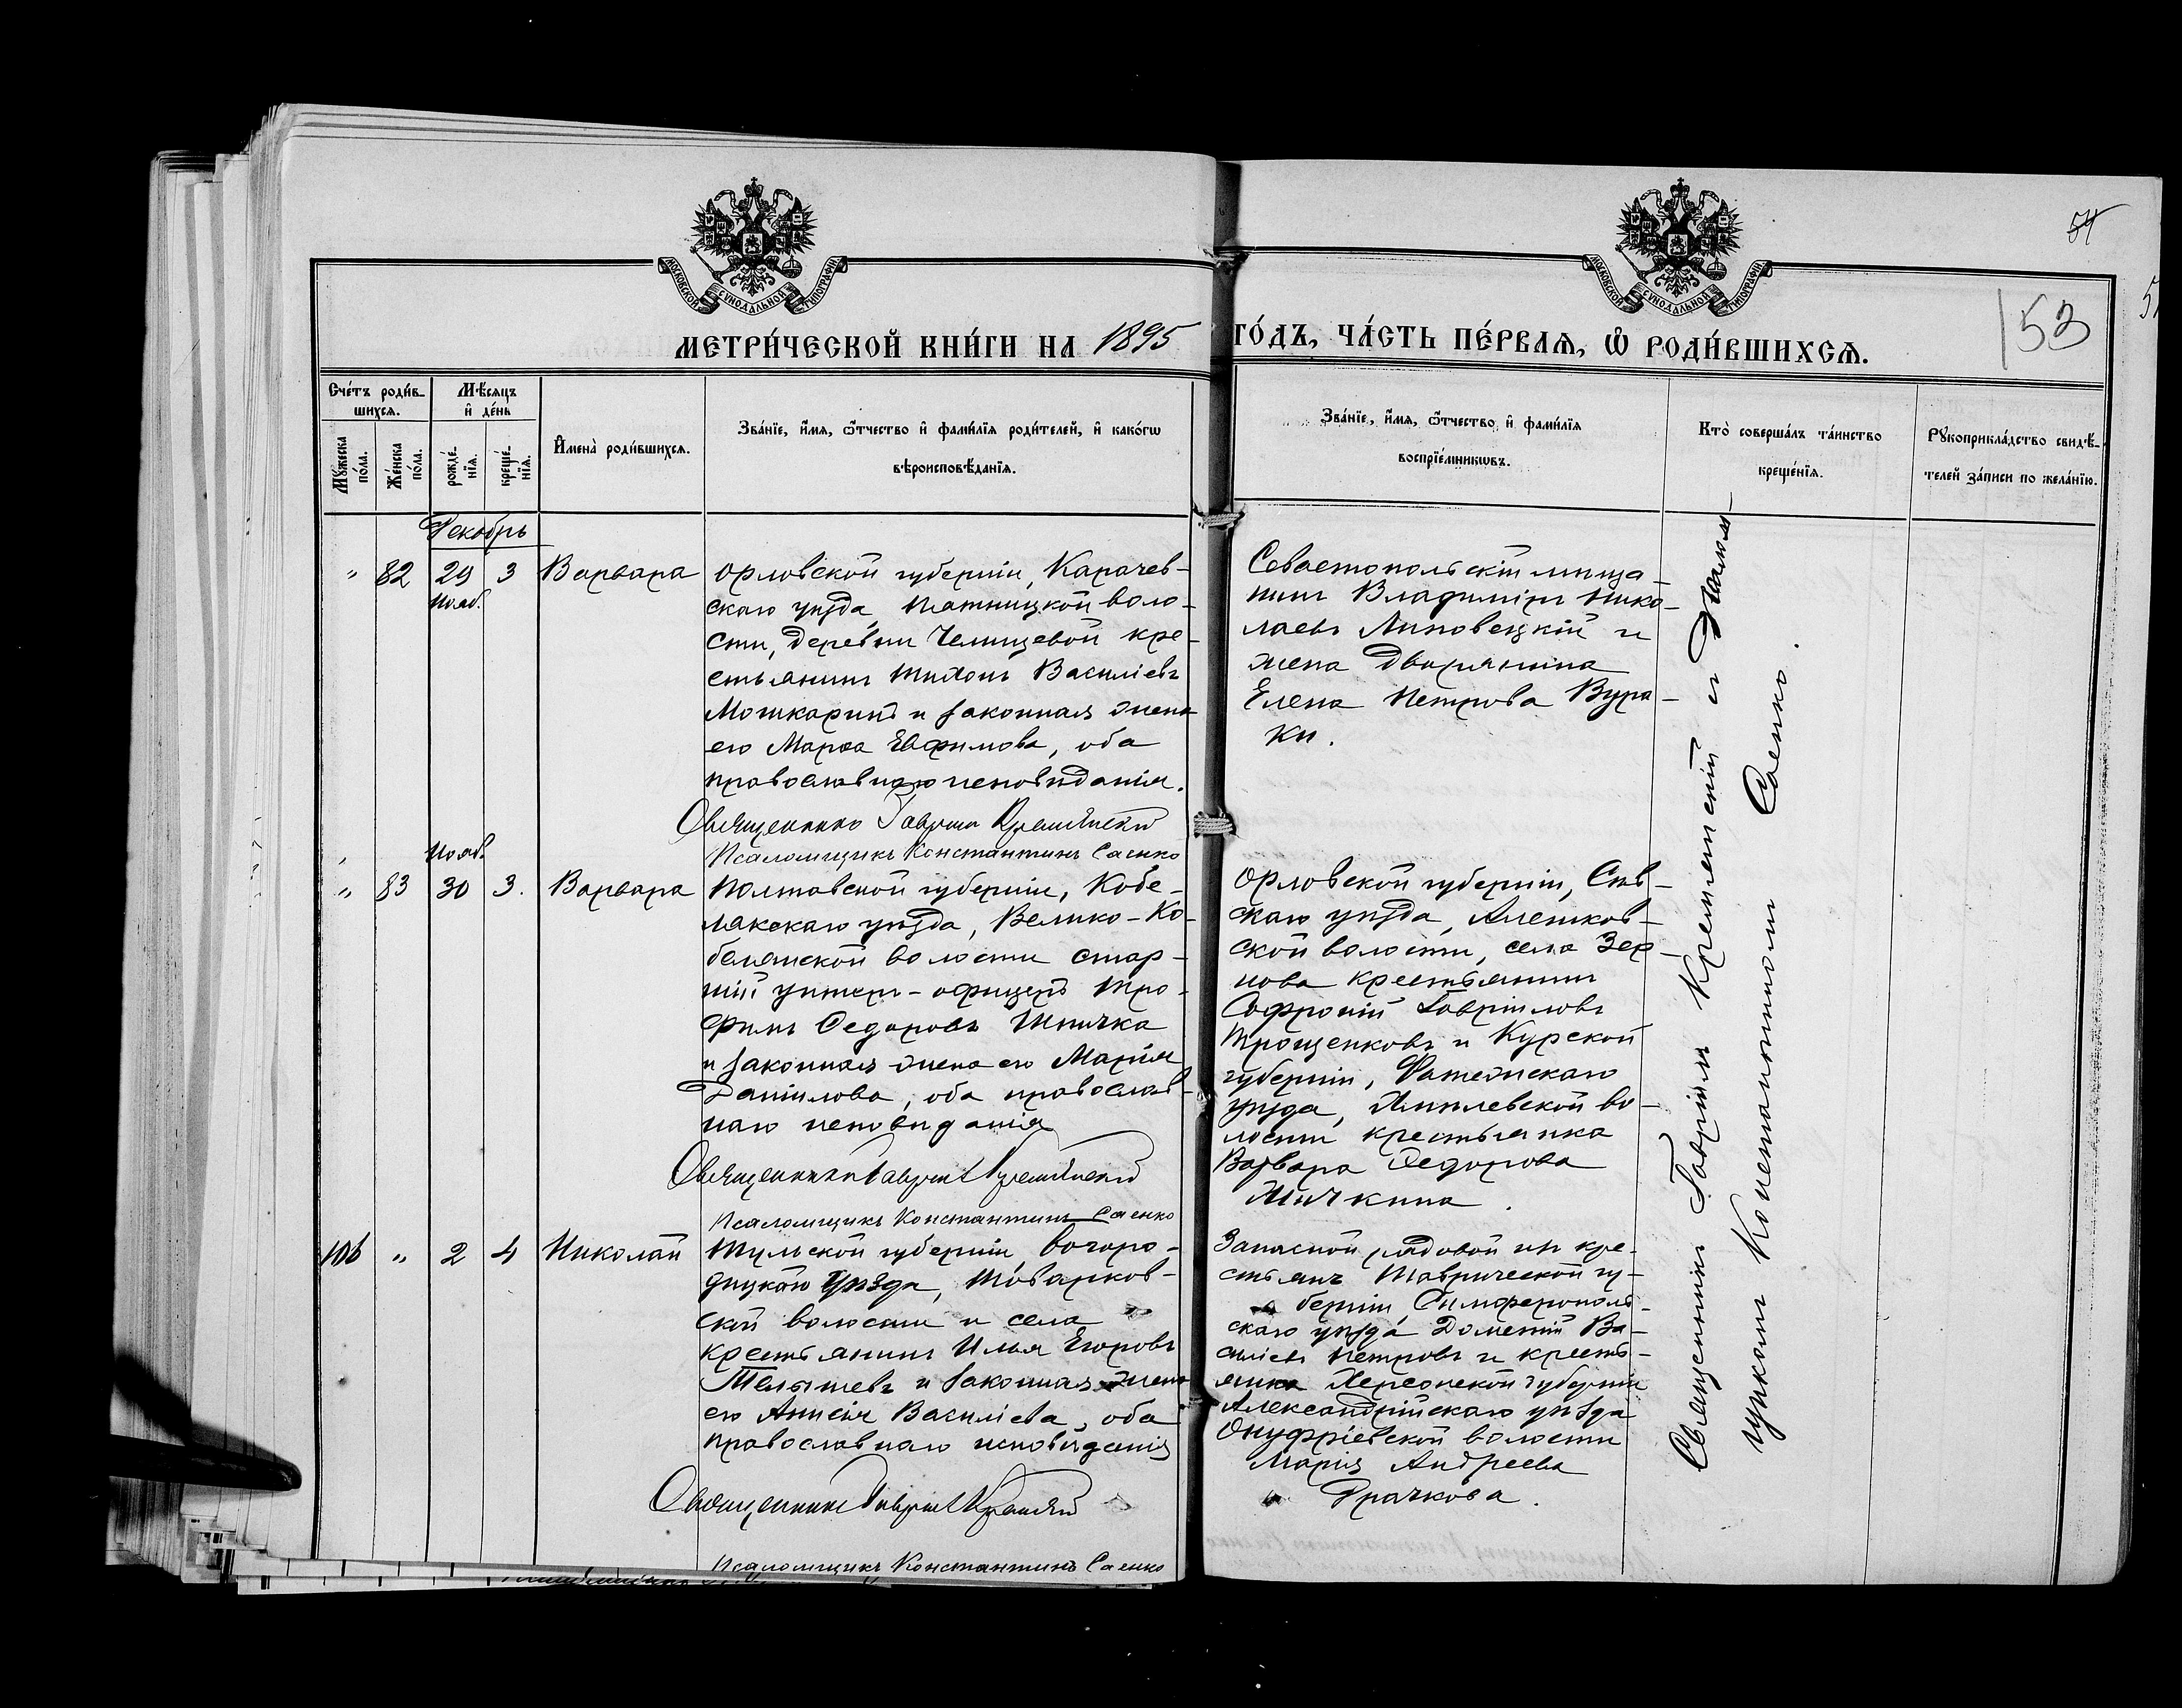 54
53
МОСКОВСКОЙ СѴНОДАЛЬНОЙ ТИПОГРАФІИ
МОСКОВСКОЙ СѴНОДАЛЬНОЙ ТИПОГРАФІИ
МЕТРИ́ЧЕСКОЙ КНИ́ГИ НА 1895 ГО́ДЪ, ЧА́СТЬ ПЕ́РВАѦ, Ѡ҆ РОДИ́ВШИХСѦ.
Сче́тъ роди́в-
шихсѧ.
Мꙋ́жеска по́ла.
Же́нска по́ла.
Мѣ́сѧцъ
и҆ де́нь
рожде́-
нїѧ.
креще́-
нїѧ.
И҆мена̀ роди́вшихсѧ.
Зва́нїе, и҆́мѧ, ѻ҆́тчество и҆ фами́лїѧ роди́телей, и҆ како́гѡ
вѣроисповѣ́данїѧ.
Зва́нїе, и҆́мѧ, ѻ҆́тчество и҆ фами́лїѧ
воспрїе́мникѡвъ.
Кто̀ соверша́лъ та́инство
креще́нїѧ.
Рꙋкоприкла́дство свидѣ́-
телей за́писи по жела́нїю.
Декабрь
" 82 29 3 Варвара
Нояб.
Орловской губерніи, Карачев-
скаго уѣзда, Пятницкой воло-
сти, деревни Челищевой кре-
стьянинъ Тихонъ Василіевъ
Мошкаринъ и законная жена
его Марѳа Евфимова, оба
православнаго исповѣданія.
Священникъ Гавріилъ Кремянскій
Псаломщикъ Константинъ Саенко
Севастопольскій мѣща-
нинъ Владиміръ Нико-
лаевъ Липовецкій и
жена дворянина
Елена Петрова Вура-
ки.
Нояб.
" 83 30 3. Варвара
Полтавской губерніи, Кобе-
лякскаго уѣзда, Велико-Ко-
белянской волости стар-
шій унтеръ-офицеръ Тро-
фимъ Ѳедоровъ Шпичка
и законная жена его Марія
Даніилова, оба православ-
наго исповѣданія
Священникъ Гавріилъ Кремянскій
Псаломщикъ Константинъ Саенко
Орловской губерніи, Сѣв-
скаго уѣзда, Алешков-
ской волости, села Зер-
нова крестьянинъ
Софроній Гавріиловъ
Трощенковъ и Курской
губерніи, Фатежскаго
уѣзда, волости крестьянка
Варвара Ѳедорова
Мичкина.
106 " 2 4 Николай
Тульской губерніи, Богоро-
дицкаго уѣзда, Товарков-
ской волости и села
крестьянинъ Илья Егоровъ
и законная жена
его Анисія Василіева, оба
православнаго исповѣданія
Священникъ Гавріилъ Кремянскій
Псаломщикъ Константинъ Саенко
Запасной рядовой изъ кре-
стьянъ Таврической гу-
берніи, Симферополь-
скаго уѣзда Дометій Ва-
силіевъ Петровъ и кресть-
янка Херсонской губерніи
Александрійскаго уѣзда
Онуфріевской волости
Марія Андреева
Драчкова.
Священникъ Гавріилъ Кремянскій съ Псалом-
щикомъ Константиномъ Саенко.